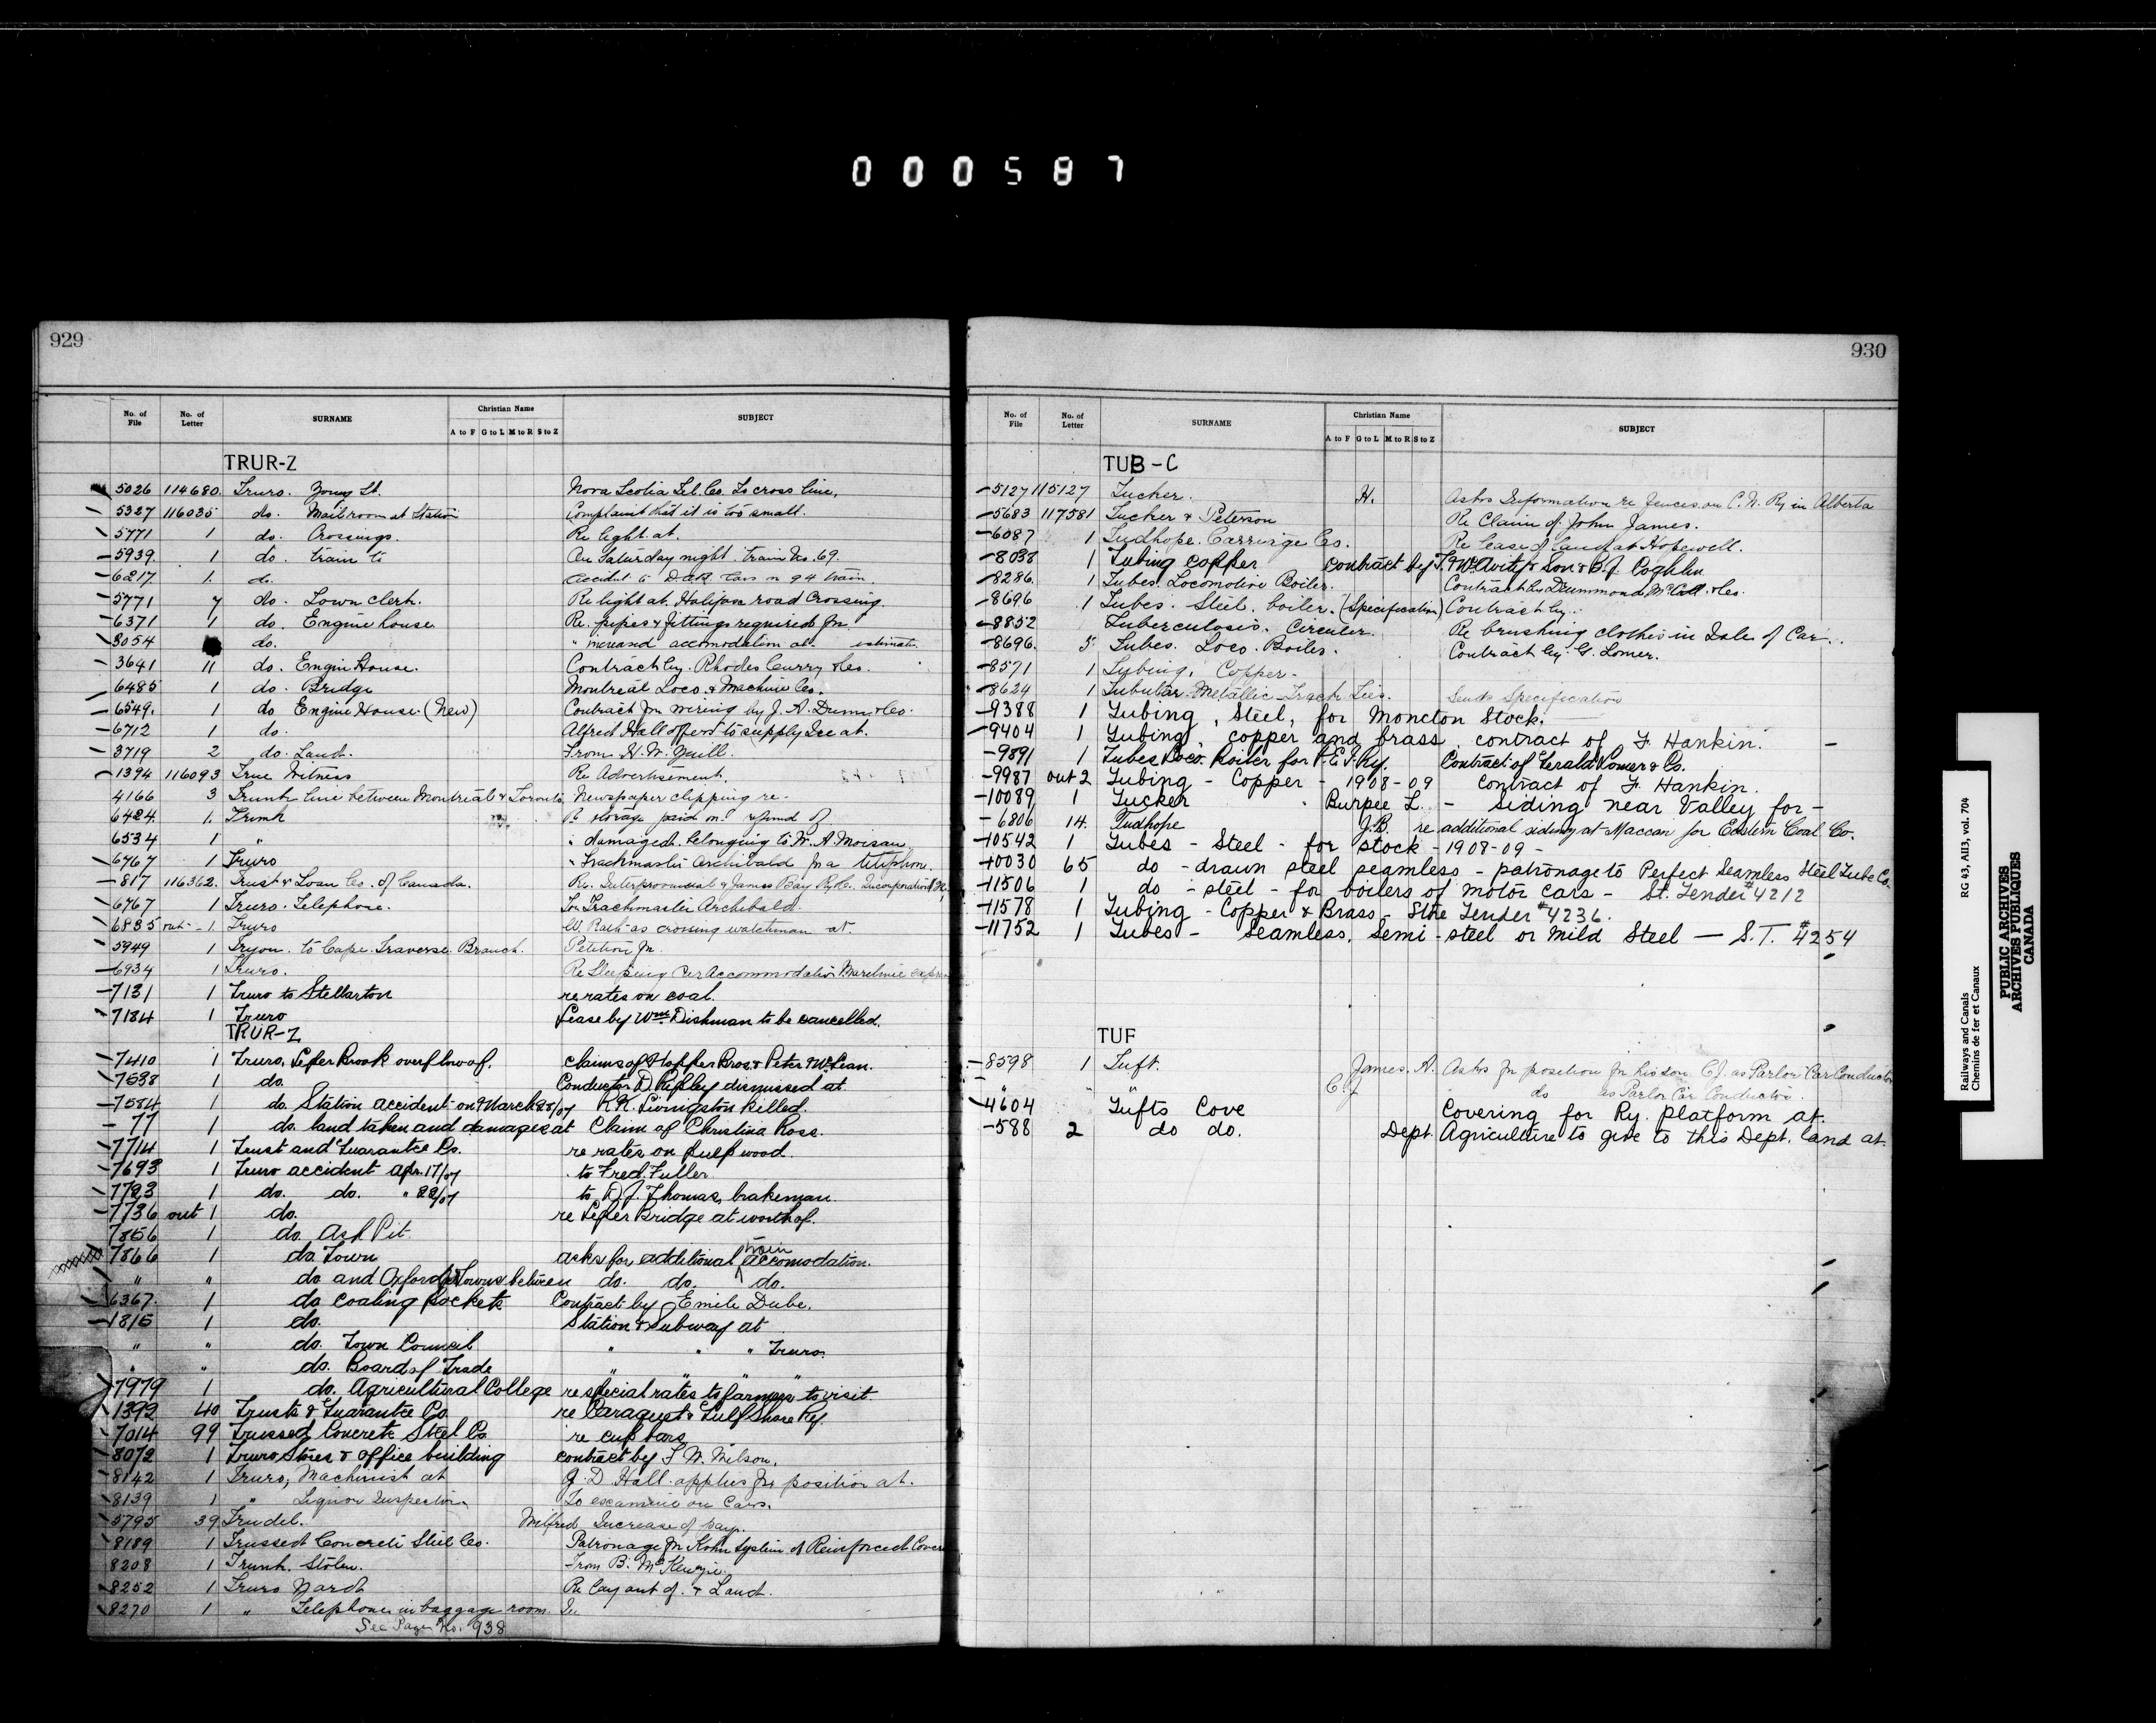 000587
929
No. of File No. of Letter SURNAME Christian Name A to F G to L M to R S to Z SUBJECT
TRUR-Z
5026 114680. Truro. Young St. Nova Scotia Tel. Co. To cross line.
5327 116035 do. Mail room at Station Complaint that it is too small.
5771 1 do. Crossings. Re light at.
5939. 1 do. train to On Saturday night. train No. 69.
6217 1. do. Accident to D.A.R. Cars in 94 train.
5771 7 do. Town Clerk. Re light at Halifax road Crossing.
6371 1 do. Engine house Re. pipes & fittings required for.
8054 do. " increased accomodation at. estimate.
3641 11 do. Engin House. Contract by. Rhodes Curry & Co.
6485 1 do. Bridge Montreal Loco. & Machine Co.
6549. 1 do Engine House (New) Contract for wiring by J. A. Dunn & Co.
6712 1 do. Alfred Hall offers to supply Ice at.
3719 2 do. Land. From H. W. Yuill.
1394 116093 True Witness Re Advertisement.
4166 3 Trunk line between Montreal & Toronto. Newspaper clipping re.
6424. 1. Trunk Re storage paid on. refund of
6534 1 " " damaged. belonging to W. A. Moisan
6767 1 Truro " Trackmaster Archibald for a telephone.
817 116362. Trust & Loan Co. of Canada. Re. Interprovincial & James Bay Ry Co. Incorporation
6767 1 Truro. Telephone. For Trackmaster Archibald.
6835 out - 1 Truro W. Rath as crossing watchman at.
5949 1 Tryon. to Cape Traverse Branch. Petition for.
6934 1 Truro. Re Sleeping Car Accommodation Maritime express
7131 1 Truro to Stellarton re rates on coal.
7184 1 Truro Lease by Wm. Dishman to be cancelled.
TRUR-Z
7410 1 Truro, Leper Brook overflow of. Claims of Hopper Bros. & Peter McLean.
7538 1 do. Conductor D. Ripley dismissed at.
7584 1 do. Station accident on 9 March 28/07 R. K. Livingston killed.
77 1 do. land taken and damages at Claim of Christina Ross.
7714 1 Trust and Guarantee Co. re rates on pulp wood.
7693 1 Truro accident Apr. 17/07 to Fred. Fuller
7723 1 do. do. " 22/07 to D. J. Thomas, brakeman.
7736 out 1 do. re Leper Bridge at
7856 1 do. Ash Pit
7866 1 do. Town asks for additional train accomodation.
" " do and Oxford Towns between do. do. do.
6367. 1 do coaling pockets Contract by Emile Dube.
1815 1 do. Station & Subway at
" " do. Town Council " " " Truro.
" " do. Board of Trade " " "
7979 1 do. Agricultural College re special rates to farmers to visit.
1392 40 Trusts & Guarantee Co. re Caraquet & Gulf Shore Ry.
7014 99 Trussed Concrete Steel Co re cup bars
8072 1 Truro Stores & office building contract by F. W. Wilson.
8142 1 Truro, Machinist at G. D. Hall applies for position at.
8139 1 " Liquor Inspector To examine on Cars.
5795 39 Trudel. Wilfred Increase of pay.
8189 1 Trussed Concrete Steel Co. Patronage for Kahn System of Reinforced
8208 1 Trunk. Stolen. From B. McKenzie.
8252 1 Truro Yard Re lay out of. & Land.
8270 1 " Telephone in baggage room.
See Page No. 938
930
No. of File No. of Letter SURNAME Christian Name A to F G to L M to R S to Z SUBJECT
TUB-C
5127 115127 Tucker. H. Asks Information re fences on C. N. Ry in Alberta
5683 117581 Tucker & Peterson Re Claim of John James.
6087 1 Tudhope. Carriage Co. Re lease of land at Hopewell.
8038 1 Tubing copper contract by T. McAvity & Son & B. J. Coghlin
8286. 1 Tubes. Locomotive Boiler. Contract by Drummond, McCall & Co.
8696 1 Tubes. Steel. boiler. (Specification) Contract by.
8852 Tuberculosis. Circular. Re brushing clothes in Isle of Car.
8696. 5 Tubes. Loco. Boiler. Contract by. G. Lomer.
8571 1 Tubing, Copper.
8624 1 Tubular Metallic Track Ties. Sends Specification
9388 1 Tubing, Steel, for Moncton Stock.
9404 1 Tubing, copper and brass. contract of F. Hankin.
9891 1 Tubes Loco. Boiler for P.E.I. Ry. Contract of Gerald Lomer & Co.
9987 out 2 Tubing - Copper - 1908-09 contract of F. Hankin.
10089 1 Tucker Burpee L. - Siding near Valley for -
6806 14. Tudhope J.B. re additional siding at Maccan for Eastern Coal Co.
10542 1 Tubes - Steel - for stock - 1908-09 -
10030 65 do - drawn steel seamless - patronage to Perfect Seamless Steel Tube Co.
11506 1 do - steel - for boilers of motor cars - St. Tender #4212
11578 1 Tubing - Copper & Brass - Store Tender #4236.
11752 1 Tubes - Seamless, Semi-steel or Mild Steel - S.T. #4254
TUF
8598 1 Tuft. James. A. Asks for position for his son C.J. as Parlor Car Conductor
" " " C.J do as Parlor Car Conductor.
4604 Tufts Cove Covering for Ry. platform at.
588 2 do do. Dept. Agriculture to give to this Dept. land at.
Railways and Canals RG 43, AII3, vol. 704
Chemins de fer et Canaux
PUBLIC ARCHIVES
ARCHIVES PUBLIQUES
CANADA